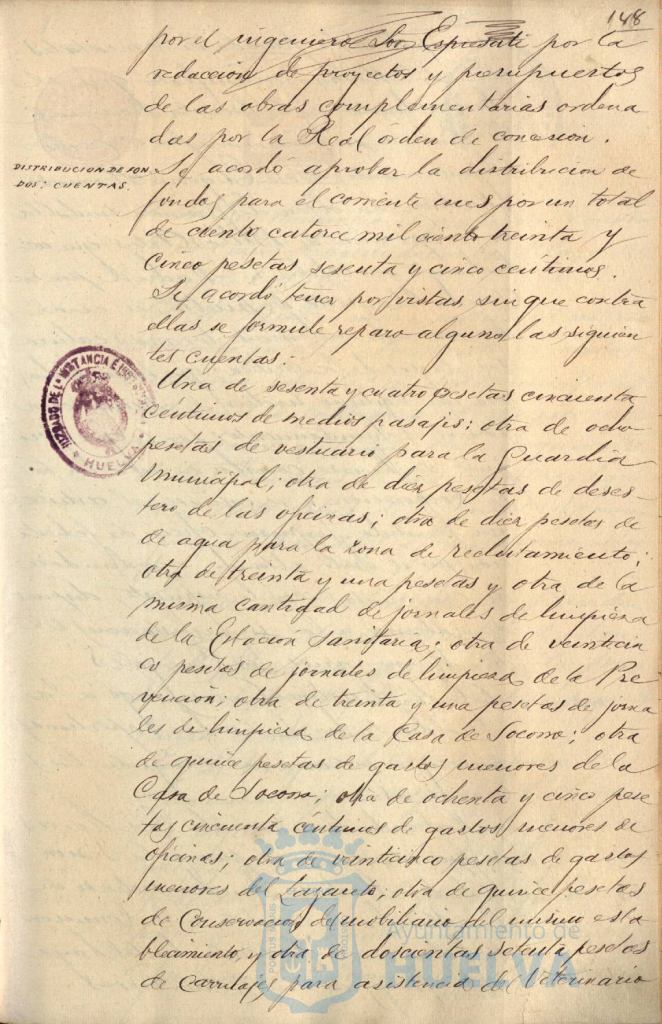 148
por el ingeniero Sor Espresati por la
redacción de proyectos y presupuestos
de las obras complementarias ordena
das por la Real órden de concesion.
DISTRIBUCION DE FON
DOS: CUENTAS.
Se acordó aprobar la distribucion de
fondos para el corriente mes por un total
de ciento catorce mil ciento treinta y
cinco pesetas sesenta y cinco centimos.
Se acordó tener por vistas, sin que contra
ellas se formule reparo alguno, las siguien
tes cuentas:
Una de sesenta y cuatro pesetas cincuenta
céntimos de medios pasajes; otra de ocho
pesetas de vestuario para la Guardia
Municipal; otra de diez pesetas de deses-
tero de las oficinas; otra de diez pesetas de
de agua para la zona de reclutamiento;
otra de treinta y una pesetas y otra de la
misma cantidad de jornales de limpieza
de la Estación Sanitaria; otra de veinticin
co pesetas de jornales de limpieza de la Pre
vención; otra de treinta y una pesetas de jorna
les de limpieza de la Casa de Socorro; otra
de quince pesetas de gastos menores de la
Casa de Socorro; otra de ochenta y cinco pese
tas cincuenta céntimos de gastos menores de
oficinas; otra de veinticinco pesetas de gastos
menores del Lazareto; otra de quince pesetas
de conservacion del mobiliario del mismo esta
blecimiento, y otra de doscientas setenta pesetas
de carruajes para asistencia del Veterinario
JUZGADO DE 1ª INSTANCIA E
HUELVA
Ayuntamiento de
HUELVA